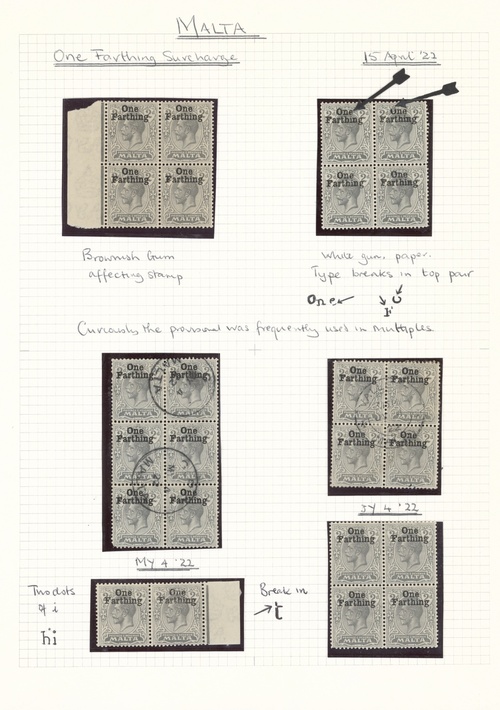 MALTA
One Farthing Surcharge
15 April '22
One One
Farthing Farthing
MALTA MALTA
One One
Farthing Farthing
MALTA MALTA
One One
Farthing Farthing
MALTA MALTA
One One
Farthing Farthing
MALTA MALTA
Brownish Gum
affecting stamp
White gum, paper.
Type breaks in top pair
One
F
Curiously the provisional was frequently used in multiples
One One
Farthing Farthing
MALTA MALTA
One One
Farthing Farthing
MALTA MALTA
One One
Farthing Farthing
MALTA MALTA
One One
Farthing Farthing
MALTA MALTA
One One
Farthing Farthing
MALTA MALTA
MY 4 '22
JY 4 '22
Two dots
of i
hi
One One
Farthing Farthing
MALTA MALTA
Break in
t
One One
Farthing Farthing
MALTA MALTA
One One
Farthing Farthing
MALTA MALTA